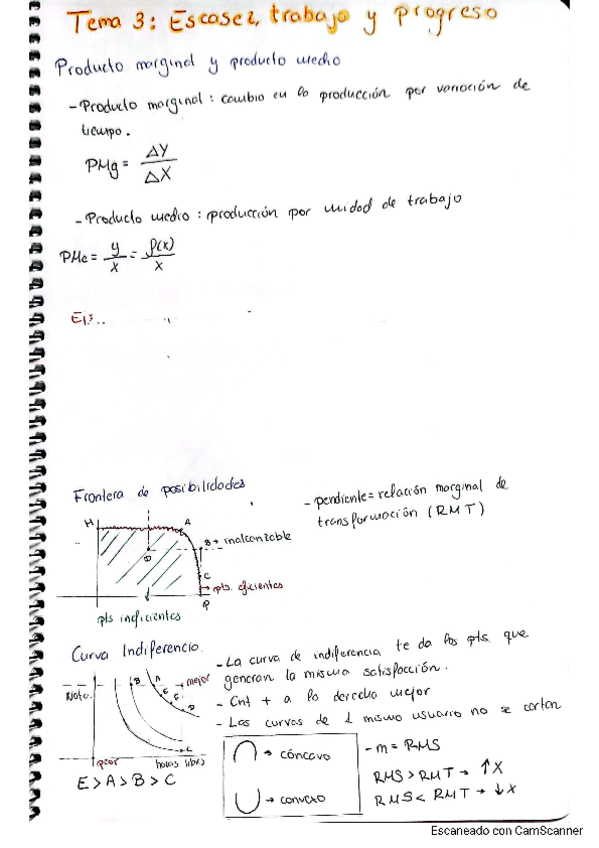 Tema 3: Escasez, trabajo y progreso
Producto marginal y producto medio
- Producto marginal: cambio en la producción por variación de
tiempo.
PMg = ΔY / ΔX
- Producto medio: producción por unidad de trabajo
PMe = y/x = f(x)/x
Ej:..
Frontera de posibilidades
- pendiente = relación marginal de
transformación (RMT)
H
A
B → inalcanzable
D
C
→ pts. eficientes
P
pts ineficientes
Curva Indiferencia.
- La curva de indiferencia te da los pts. que
generan la misma satisfacción.
- Cnt + a la derecha mejor
- Las curvas de 1 mismo usuario no se cortan
Nota
B
A
E
C
D
→ mejor
C
peor
horas libres
E > A > B > C
∩ → cóncavo
∪ → convexo
- m = RMS
RMS > RMT → ↑X
RMS < RMT → ↓X
Escaneado con CamScanner